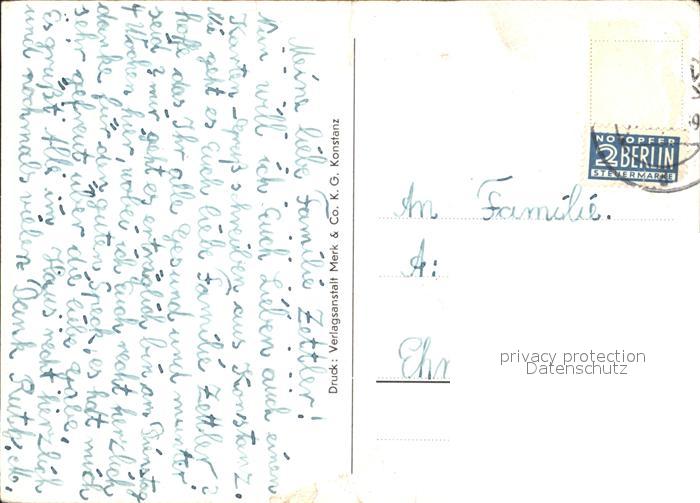 Meine liebe Familie Zettler!
Nun will ich Euch Lieben auch einen
Karten-Gruß schreiben aus Konstanz.
Wie geht es Euch liebe Familie Zettler?
hoffe das Ihr alle Gesund und munter
seid? mir geht es erträglich bin am Dienstag
4 Wochen hier, wobei ich Euch recht herzlich
danke für den guten Speck, es hat mich
sehr gefreut über die liebe gabe,
Es grüßt Alle im Haus recht herzlich
und nochmals vielen Dank
Druck: Verlagsanstalt Merk & Co. K. G. Konstanz
NOTOPFER
2 BERLIN
STEUERMARKE
An Familie.
A:
Ehr
privacy protection
Datenschutz